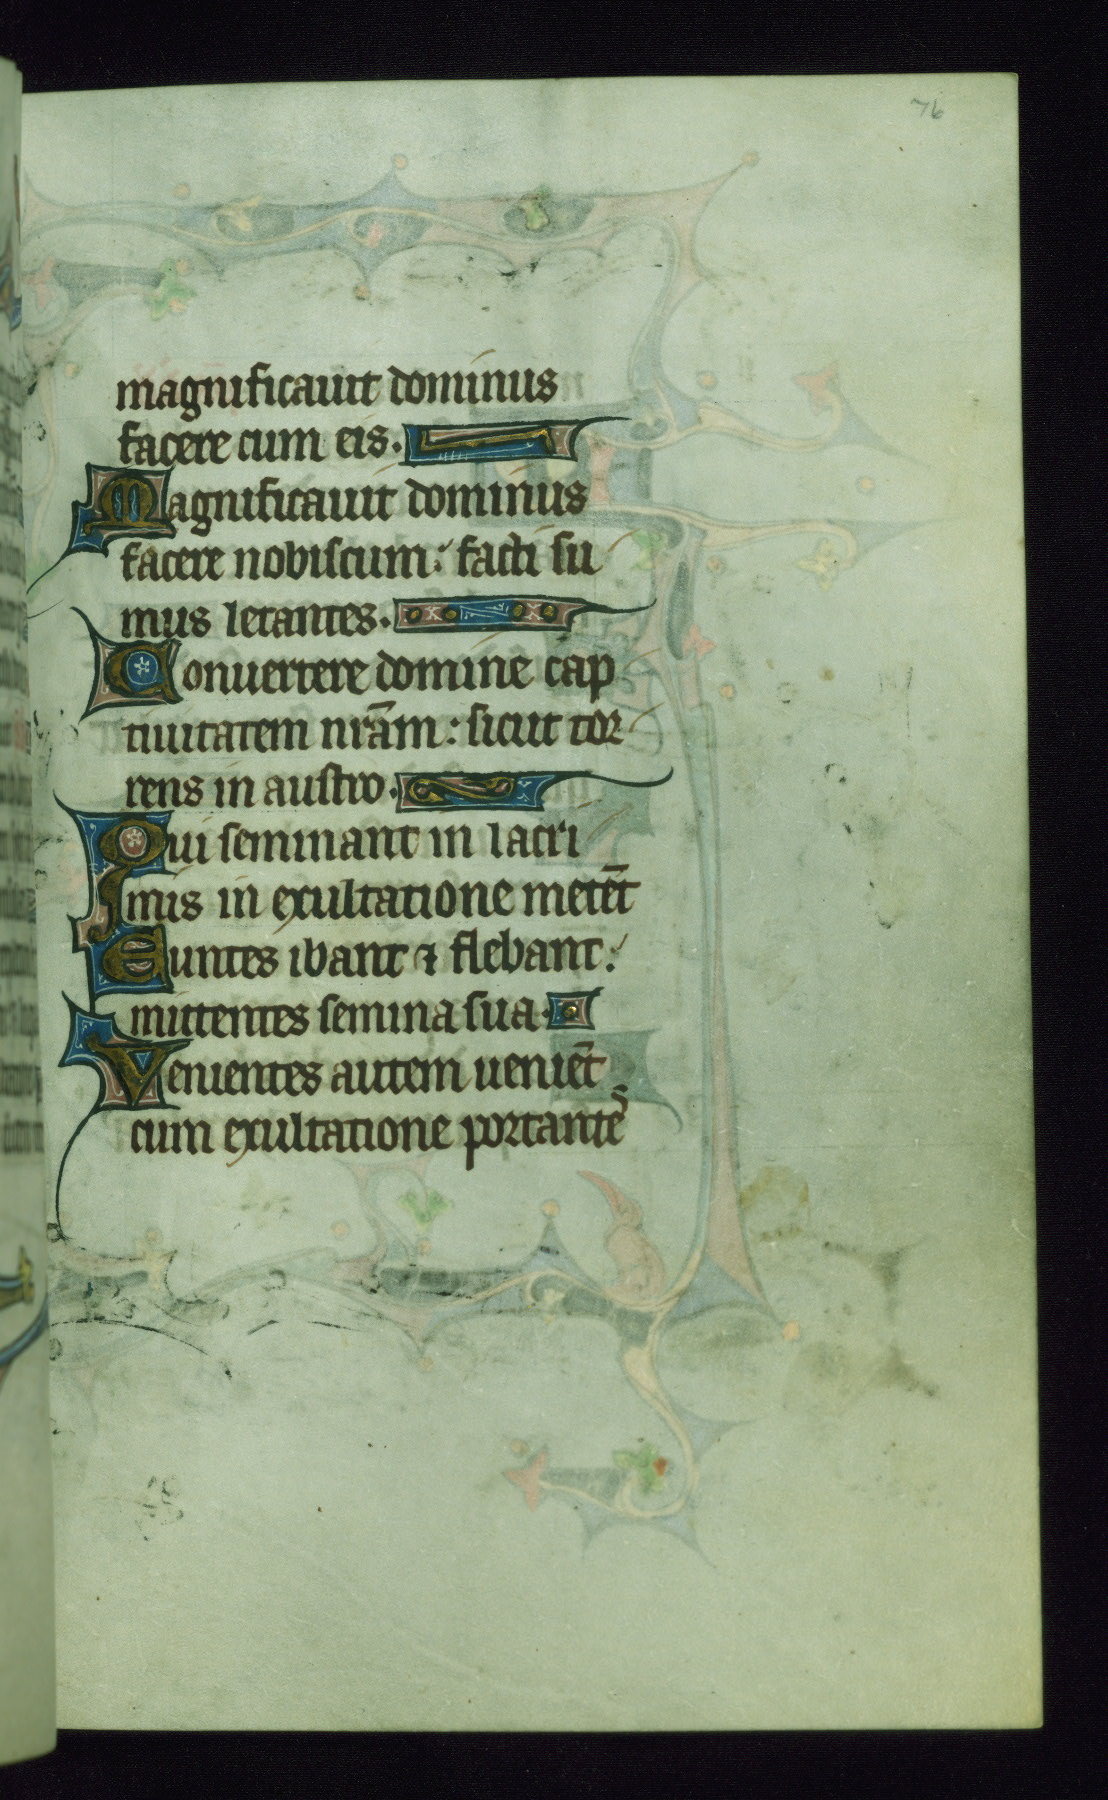 76
magnificauit dominus
facere cum eis.
Magnificauit dominus
facere nobiscum: facti su
mus letantes.
Conuertere domine cap
tiuitatem nr̄am: sicut tor
rens in austro.
Qui seminant in lacri
mis in exultatione metēt
Euntes ibant ⁊ flebant:
mittentes semina sua.
Venientes autem ueniēt
cum exultatione portantes